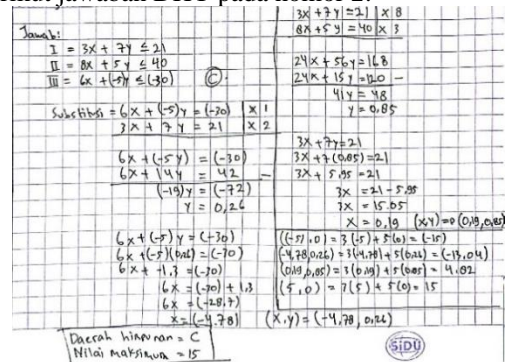 Jawab:
I = 3x + 7y ≤ 21
II = 8x + 5y ≤ 40
III = 6x + (-5)y ≤ (-30)
C
Substitusi = 6x + (-5)y = (-30) | x 1
3x + 7y = 21 | x 2
6x + (-5y) = (-30)
6x + 14y = 42 −
(-19)y = (-72)
y = 0,26
6x + (-5)y = (-30)
6x + (-5)(0,26) = (-30)
6x + -1,3 = (-30)
6x = (-30) + 1,3
6x = (-28,7)
x = (-4,78)
Daerah himpunan = C
Nilai maksimum = 15
3x + 7y = 21 | x 8
8x + 5y = 40 | x 3
24x + 56y = 168
24x + 15y = 120 −
41y = 48
y = 0,85
3x + 7y = 21
3x + 7(0,85) = 21
3x + 5,95 = 21
3x = 21 - 5,95
3x = 15.05
x = 0,19 (x,y) = (0,19,0,85)
((-5),0) = 3(-5) + 5(0) = (-15)
(-4,78,0,26) = 3(-4,78) + 5(0,26) = (-13,04)
(0,19,0,85) = 3(0,19) + 5(0,85) = 4,82
(5,0) = 3(5) + 5(0) = 15
(x,y) = (-4,78, 0,26)
SiDU